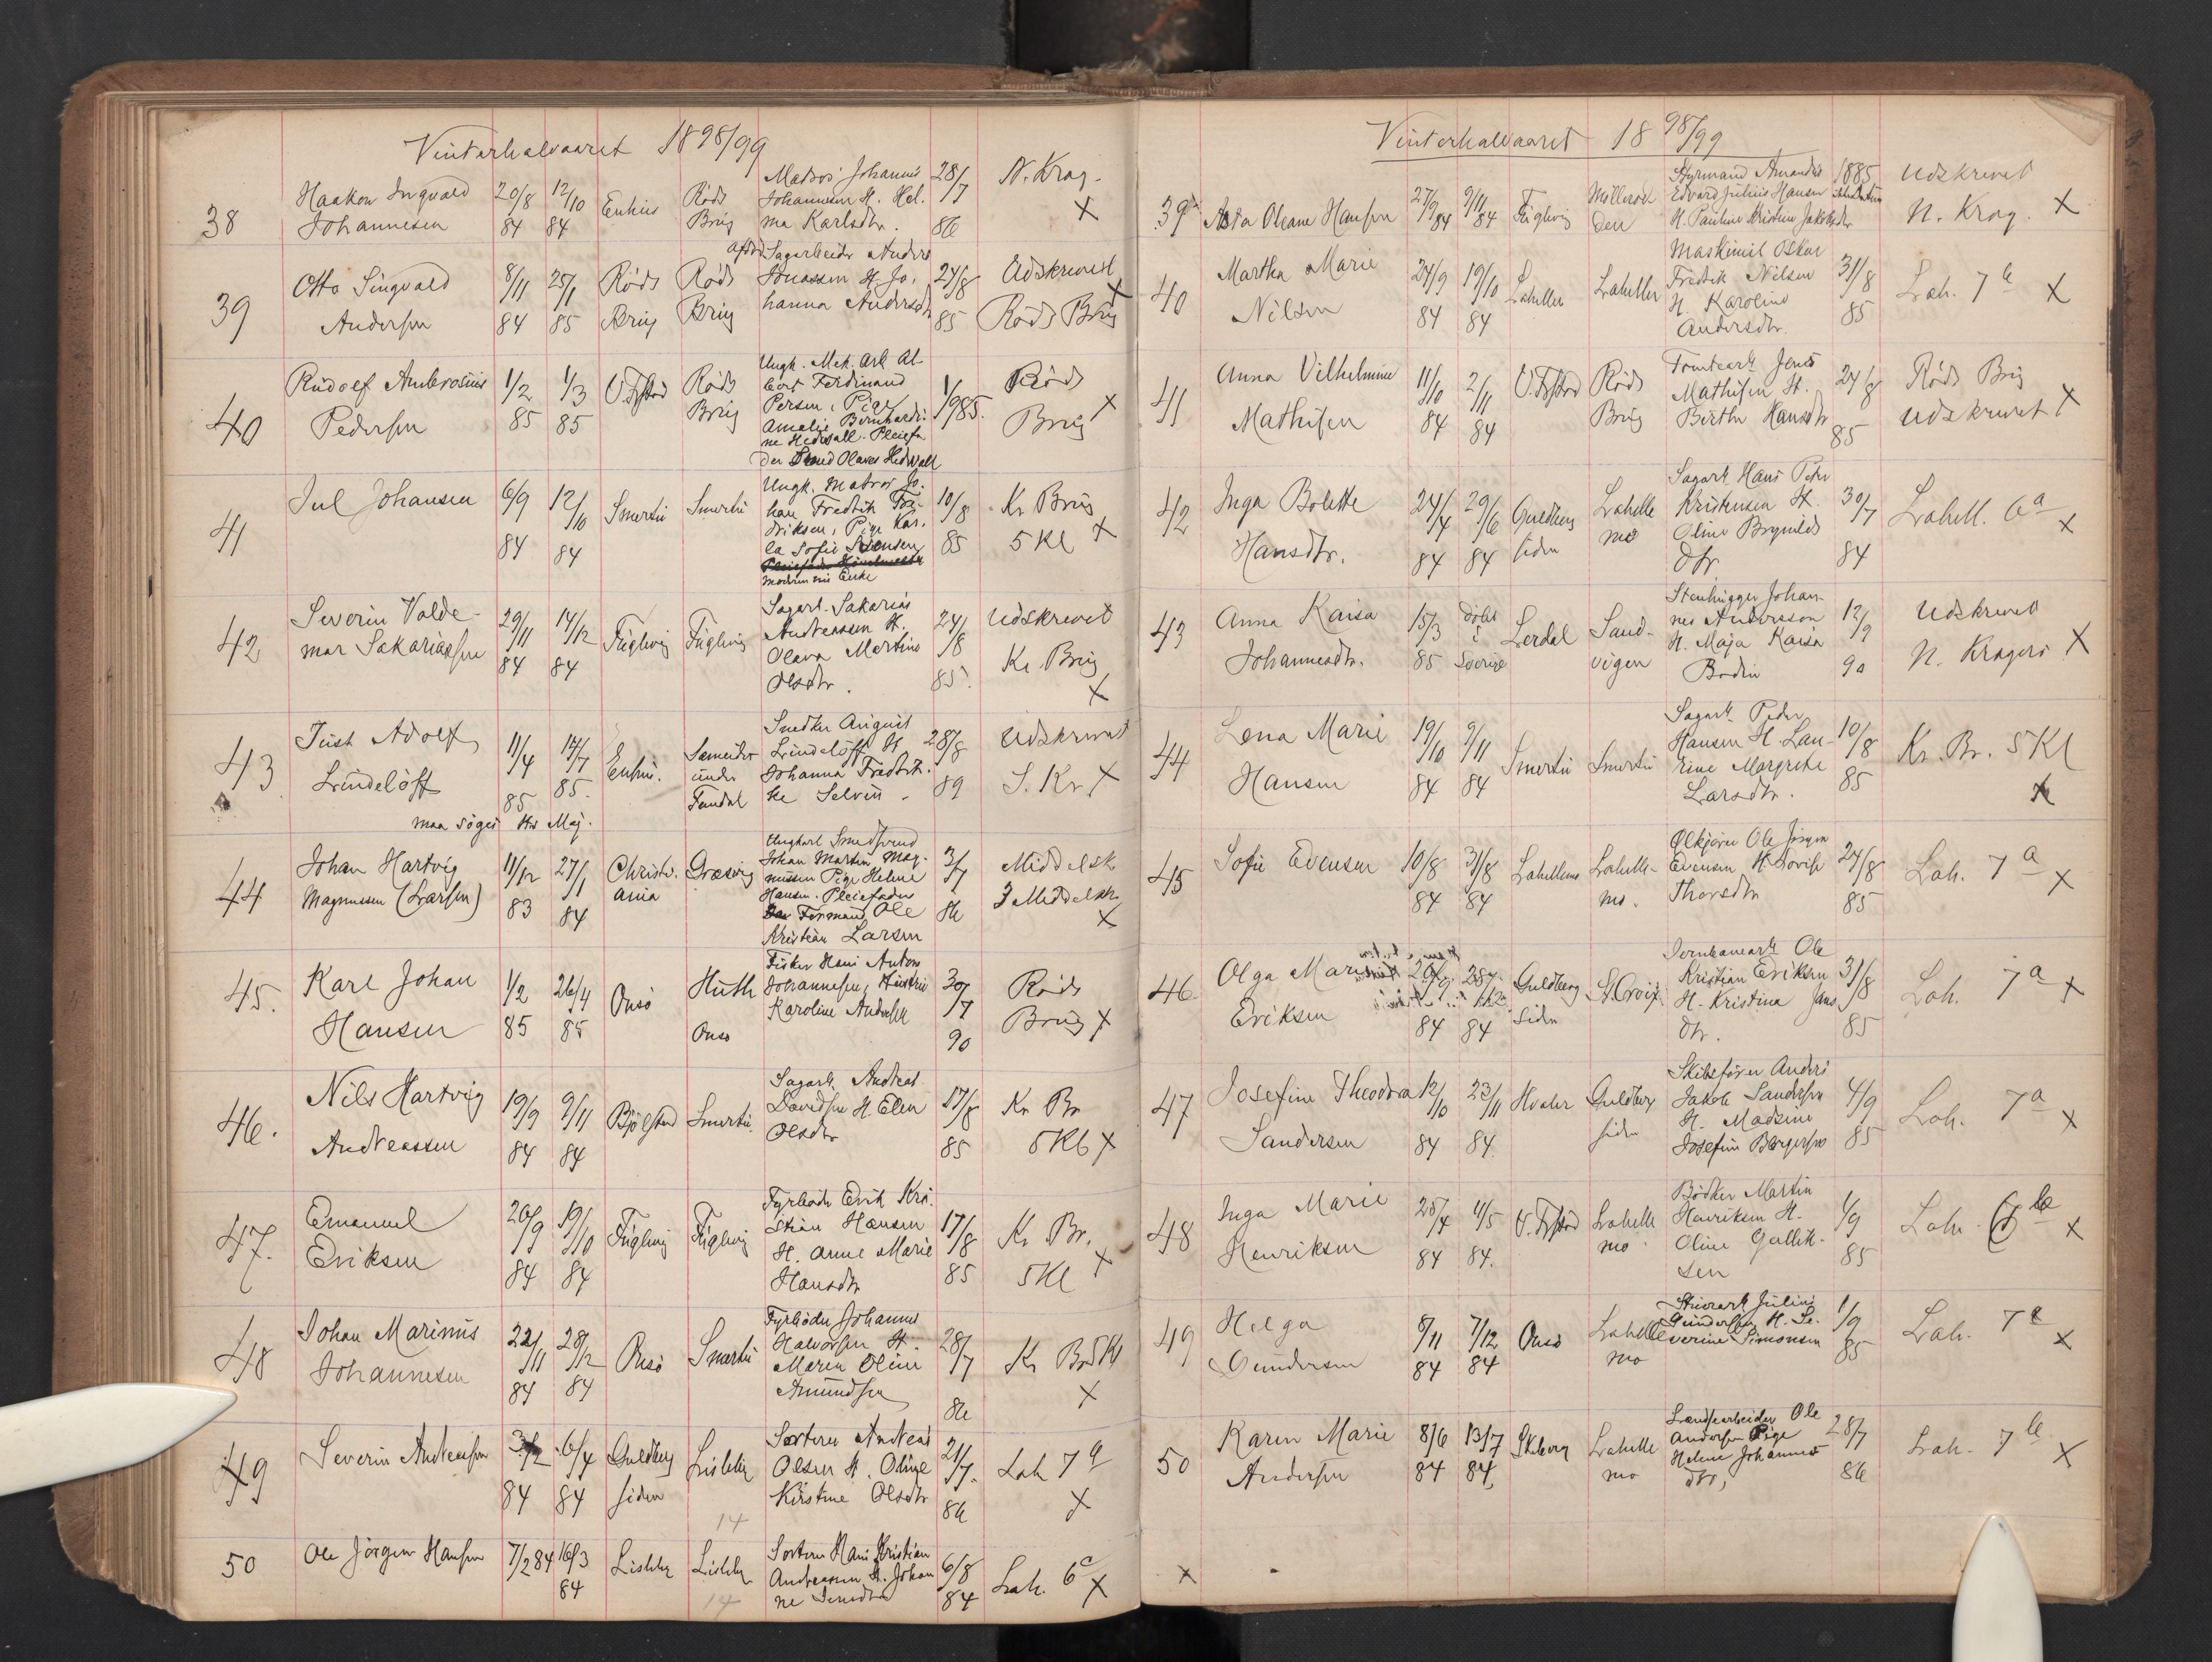 Vinterhalvaaret 1898/99
38 Haakon Ingvald Johannesen 20/8 84 12/10 84 Enhus Røds Brug Matros Johannes Johannesen H. Hel. ma Karlsdtr. 28/7 86 N. Krag. X
39 Otto Singvald Andersen 8/11 84 25/1 85 Røds Brug Røds Brug afdød Sagarbeider Anders Jonassen H. Jo. hanna Andersdtr 24/8 85 Udskrevet Røds Brug X
40 Rudolf Ambrosius Pedersen 1/2 85 1/3 85 Røds Brug Ungk. Mek. Arb. Al- bert Ferdinand Persen, Pige Amalie Bernhardi- ne Hedvall. Pleiefa der Olaves Hedvall 1/9 85. Røds Brug X
41 Jul Johansen 6/9 84 12/10 84 Smertu Smertu Ungk. Matros Jo. han Fredrik Fre- driksen, Pige Kar. la Sofie Svensen moderen nu Enke 10/8 85 Kr Brug 5 Kl X
42 Severin Valde- mar Sakariassen 29/11 84 14/12 84 Fuglevig Fuglevig Sagarb. Sakarias Andreassen H. Olava Martine Olsdtr. 24/8 85. Udskrevet Kr. Brug X
43 Just Adolf Lindeløff 11/4 85 14/7 85. Enhus. under Snedker August Lindeløff H Johanna Fredrik- ke Selvin 28/8 89 Udskrevet S. Kr X
maa søges H's Maj.
44 Johan Hartvig Magnussen (Larsen) 11/12 83 27/1 84 Christi- ania Græsvig Ungkarl Smedsvend Johan Martin Mag- nussen Pige Helene Hansen. Pleiefader Formand Ole Kristian Larsen 3/7 86 Middelsk. Middelsk. X
45. Karl Johan Hansen 1/2 85 26/4 85 Onsø Huth Onsø Fisker Hans Anton Johannesen, Hustru Karoline Andersen 30/7 90 Røds Brug X
46. Nils Hartvig Andreassen 19/9 84 9/11 84 Bjølstad Smertu. Sagarb. Andreas Davidsen H. Elen Olsdtr 17/8 85 Kr Br 5 Kl X
47. Emanuel Eriksen 20/9 84 19/10 84 Fuglevig Fuglevig Fyrbøder Erik Kri. stian Hansen H. Anne Marie Hansdtr 17/8 85 Kr Br. 5 Kl X
48 Johan Marinus Johannesen 22/11 84 28/12 84 Onsø Smertu Fyrbøder Johannes Halvorsen H. Maren Oline Amundsen 28/7 86 Kr Br 5 Kl X
49 Severin Andreassen 84 6/4 84 Guldberg siden Lisleby 14 Sorterer Andreas Olsen H. Oline Kirstine Olsdtr 21/7. 86 Lah 7 a X
50 Ole Jørgen Hansen 7/2 84 16/3 84 Lisleby Lisleby 14 Sorterer Hans Kristian Andreassen H. Johan ne Jensdtr 6/8 84 Lah. 6 c X
Vinterhalvaaret 1898/99
39 Asta Oleane Hansen 27/9 84 9/11 84 Fuglevig Møllerød- den Styrmand Amandus Edvard Julius Hansen H. Pauline Kristine Jakobsdtr 1885 Udskrevet N. Krag. X
40 Martha Marie Nilsen 24/9 84 19/10 84 Lahellen Lahellen Maskinist Oskar Fredrik Nilsen H. Karoline Andersdtr. 31/8 85 Lah. 7 b X
41 Anna Vilhelmine Mathisen 11/10 84 2/11 84 Røds Brug Tomtearb. Jens Mathisen H. Birthe Hansdtr 24/8 85 Røds Brug Udskrevet X
42 Inga Bolette Hansdtr. 24/4 84 29/6 84 Guldberg siden Lahelle mo Sagarb. Hans Peter Kristensen H. Oline Brynilds dtr. 30/7 84 Lahell. 6 a X
43 Anna Kaisa Johannesdtr. 15/3 85 døbt i Sverige Lerdal Sand- vigen Stenhugger Johan- nes Andersson H. Maja Kaisa Bodin 12/9 90 Udskrevet N. Kragerø X
44 Lena Marie Hansen 19/10 84 9/11 84 Smertu Smertu Sagarb. Peder Hansen H. Lau- rine Margrethe Larsdtr. 10/8 85 Kr. Br. 5 Kl X
45 Sofie Evensen 10/8 84 31/8 84 Lahellemo Lahelle- mo. Ølkjører Ole Jørgen Evensen H. Lovise Thorsdtr 24/8 85 Lah. 7 a X
46. Olga Marie Eriksen 84 84 Guldberg siden St. Croix. Jernbanearb. Ole Kristian Eriksen H. Kristina Jans dtr. 31/8 85 Lah. 7 a X
47 Josefine Theodora Sandersen 12/10 84 23/11 84. Hvaler Guldberg siden Skibsfører Anders Jakob Sandersen H. Madsine Josefine Børgersen 4/9 85 Lah. 7 a X
48 Inga Marie Henriksen 25/4 84 4/5 84. Lahelle mo Bødker Martin Henriksen H. Oline Gullik- sen 1/9 85 Lah. X
49 Helga Gundersen 8/11 84 7/12 84 Onsø Lahelle mo Julius Gundersen H. Se- verine Simonsen 1/9 85 Lah. 7 X
50 Karen Marie Andersen 8/6 84 13/7 84, Skiberg Lahelle mo Landsearbeider Ole Andersen Pige Helene Johannes dtr, 28/7 86 Lah. 7 b X
X